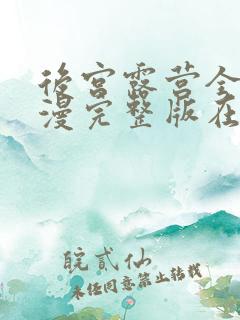 后宫露营全
漫完整版在
皖贰仙
未经同意禁止转载